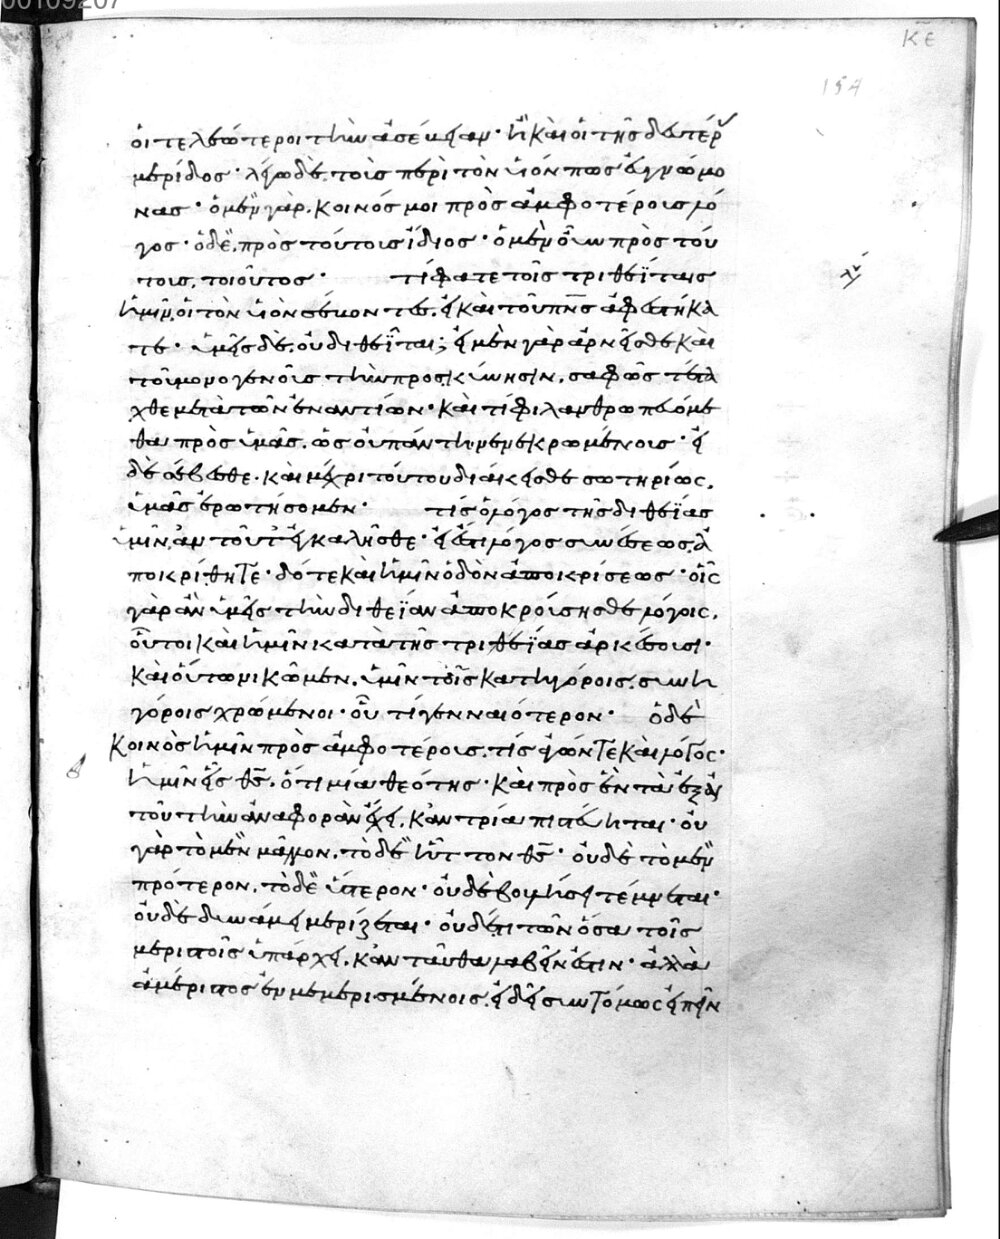 οἱ τελεώτεροι τὴν ἀσέβειαν· ἢ καὶ οἱ τῆς δευτέρ(ας)
μερίδος· λέγω δὲ, τοῖς περὶ τὸν υἱόν πως εὐγνώμο
νας· ὁ μὲν γὰρ, κοινός μοι πρὸς ἀμφοτέρους λό
γος· ὁ δὲ, πρὸς τούτους ἴδιος· ὁ μὲν οὖν πρὸς τού
τους, τοιοῦτος· τί φατε τοῖς τριθεΐταις
ἡμῖν, οἱ τὸν υἱὸν σέβοντες, εἰ καὶ τοῦ πν̅ς ἀφεστήκα
τε· ὑμεῖς δὲ, οὐ διθεῖται; εἰ μὲν γὰρ ἀρνεῖσθε καὶ
τοῦ μονογενοῦς τὴν προσκύνησιν, σαφῶς τέτα
χθε μετὰ τῶν ἐναντίων· καὶ τί φιλανθρωπευόμε
θα πρὸς ὑμᾶς, ὡς οὐ πάντη νενεκρωμένους· εἰ
δὲ σέβεσθε· καὶ μέχρι τούτου διάκεισθε σωτηρίως,
ὑμᾶς ἐρωτήσομεν· τίς ὁ λόγος τῆς διθεΐας
ὑμῖν, ἂν τοῦτ' ἐγκαλῆσθε· εἰ ἔστι λόγος συνέσεως, ἀ
ποκρίθητε· δότε καὶ ἡμῖν ὁδὸν ἀποκρίσεως· οἷς
γὰρ ἂν ὑμεῖς τὴν διθεΐαν ἀποκρούσησθε λόγοις,
οὗτοι καὶ ἡμῖν κατὰ τῆς τριθεΐας ἀρκέσουσι·
καὶ οὕτω νικῶμεν, ὑμῖν τοῖς κατηγόροις, συνη
γόροις χρώμενοι· οὗ τί γενναιότερον· ὁ δὲ
κοινὸς ἡμῖν πρὸς ἀμφοτέρους, τίς ἀγών τε καὶ λόγος·
ἡμῖν εἷς θ̅ς, ὅτι μία θεότης· καὶ πρὸς ἓν τὰ ἐξ αὐ
τοῦ τὴν ἀναφορὰν ἔχει, κἂν τρία πιστεύηται· οὐ
γὰρ τὸ μὲν μᾶλλον, τὸ δὲ ἧττον θ̅ς· οὐδὲ τὸ μὲν
πρότερον, τὸ δὲ ὕστερον· οὐδὲ βουλήσει τέμνεται·
οὐδὲ δυνάμει μερίζεται· οὐδέ τι τῶν ὅσα τοῖς
μεριστοῖς ὑπάρχει, κἀνταῦθα λαβεῖν ἐστιν· ἀλλὰ
ἀμέριστος ἐν μεμερισμένοις, εἰ δεῖ συντόμως εἰπεῖν